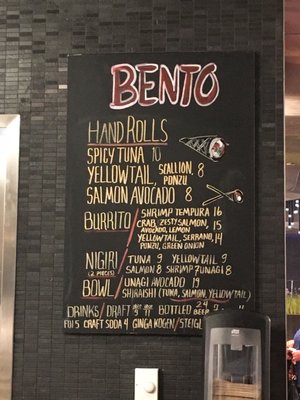 BENTO
HAND ROLLS
SPICY TUNA 10
YELLOWTAIL, SCALLION, PONZU 8
SALMON AVOCADO 8
BURRITO / SHRIMP TEMPURA 16
CRAB, ZESTY SALMON, 15
AVOCADO, LEMON
YELLOWTAIL, SERRANO, 14
PONZU, GREEN ONION
NIGIRI / TUNA 9 YELLOWTAIL 9
(2 PIECES) SALMON 8 SHRIMP 7 UNAGI 8
BOWL / UNAGI AVOCADO 19
SHIRAISHI (TUNA, SALMON, YELLOWTAIL)
DRINKS / DRAFT BOTTLED BEER
FIJI 5 CRAFT SODA 4 GINGA KOGEN / STEIGL